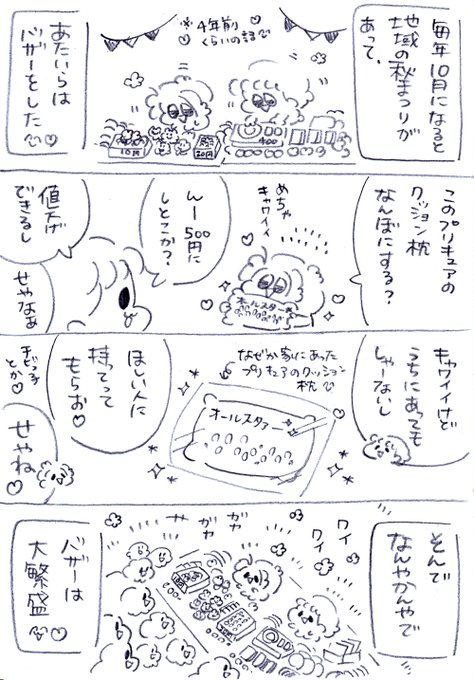 毎年10月になると
地域の秋まつりが
あって、
※4年前
くらいの話
10円
20円
400
あたいらは
バザーをした
このプリキュアの
クッション枕
なんぼにする?
めちゃ
キャワイイ
オールスター
んー500円に
しとこか?
値下げ
できるし
せやなぁ
キャワイイけど
うちにあっても
しゃーないし
なぜか家にあった
プリキュアのクッション
枕
オールスター
ほしい人に
持ってって
もらお
せやね
そんで
なんやかんやで
ワイ
ワイ
ガヤ
ガヤ
バザーは
大繁盛